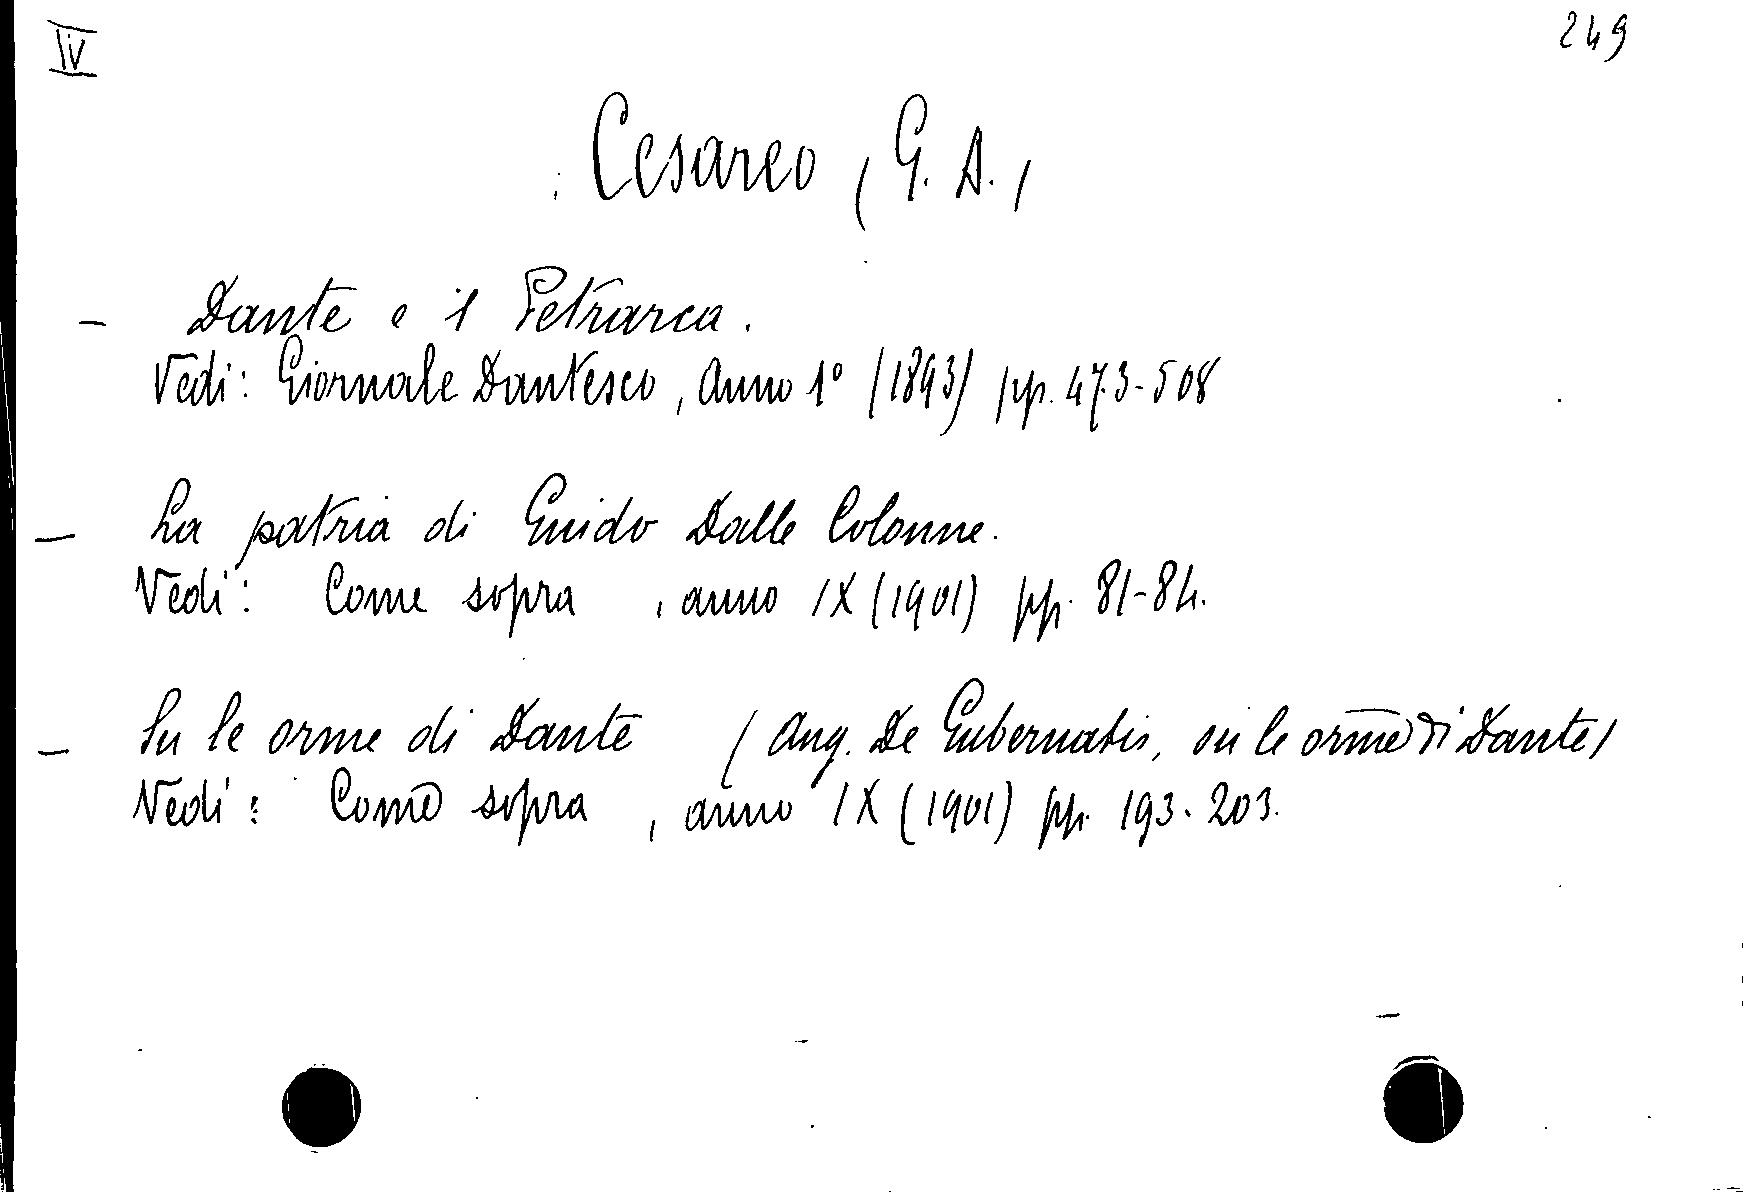 IV
249
Cesareo (G. A.)
– Dante e il Petrarca.
Vedi: Giornale Dantesco, Anno 1° (1893) pp. 473-508
– La patria di Guido Dalle Colonne.
Vedi: Come sopra, anno IX (1901) pp. 81-84.
– Su le orme di Dante (Ang. De Gubernatis, su le orme di Dante)
Vedi: Come sopra, anno IX (1901) pp. 193-203.